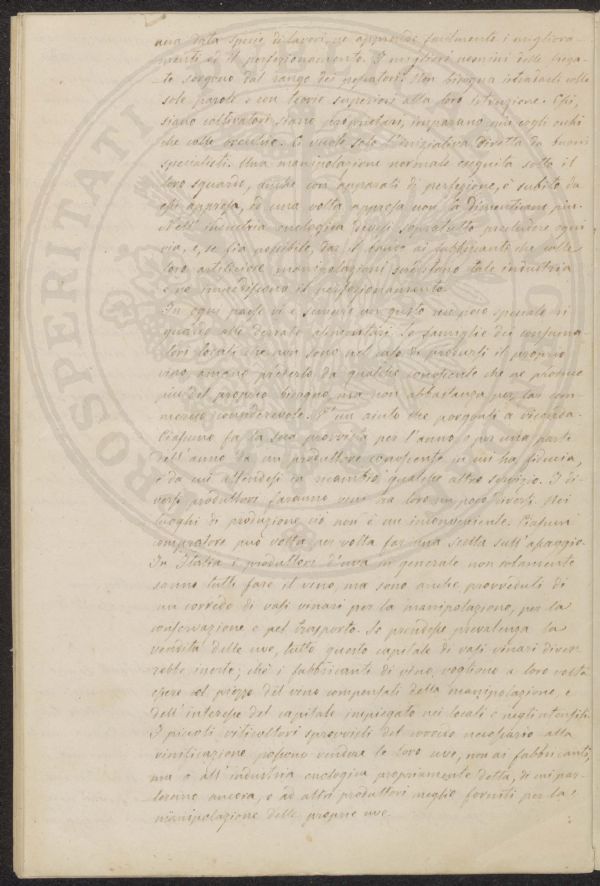 una data specie di lavori, ne apprende facilmente i migliora-
menti ed il perfezionamento. I migliori uomini
sorgono dal rango dei operatori. Non bisogna colle
sole parole o con teorie superiori alla loro istruzione. Essi,
siano coltivatori, siano proprietari, imparano più cogli occhi
che colle orecchie. Ci vuole solo l'iniziativa diretta da buoni
specialisti. Una manipolazione normale eseguita sotto il
loro sguardo, anche con apparati di perfezione, è subito da
essi appresa, ed una volta appresa non la dimenticano più.
Nell'industria enologica devesi sopratutto precludere ogni
via, e, se sia possibile, dar il bando ai fabbricanti che colle
loro artificiose manipolazioni tale industria
e ne impediscono il perfezionamento.
In ogni paese vi è sempre un gusto un poco speciale in
quanto alle derrate alimentari. Le famiglie dei consuma-
tori locali che non sono nel caso di prodursi il proprio
vino, amano prenderlo da qualche conoscente che ne produce
più del proprio bisogno, ma non abbastanza per far com-
mercio considerevole. È un aiuto che porgonsi a vicenda.
Ciascuno fa la sua provvista per l'anno o per una parte
dell'anno da un produttore conoscente in cui ha fiducia,
e da cui attendesi in ricambio qualche altro servizio. I di-
versi produttori faranno vini tra loro un poco diversi. Nei
luoghi di produzione ciò non è un inconveniente. Ciascun
compratore può volta per volta far una scelta sull'assaggio.
In Italia i produttori d'uva in generale non solamente
sanno tutti fare il vino, ma sono anche provveduti di
un corredo di vasi vinari per la manipolazione, per la
conservazione e pel trasporto. Se prendesse prevalenza la
vendita delle uve, tutto questo capitale di vasi vinari diver-
rebbe inerte; chè i fabbricanti di vino vogliono a loro volta
essere sul prezzo del vino compensati della manipolazione, e
dell'interesse del capitale impiegato nei locali e negli utensili.
I piccoli viticultori sprovvisti del corredo necessario alla
vinificazione possono vendere le loro uve, non ai fabbricanti,
ma o all'industria enologica propriamente detta, di cui par-
leremo ancora, o ad altri produttori meglio forniti per la
manipolazione delle proprie uve.